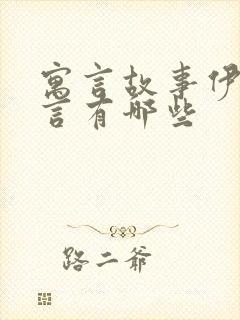 寓言故事伊
言有哪些
路二爷